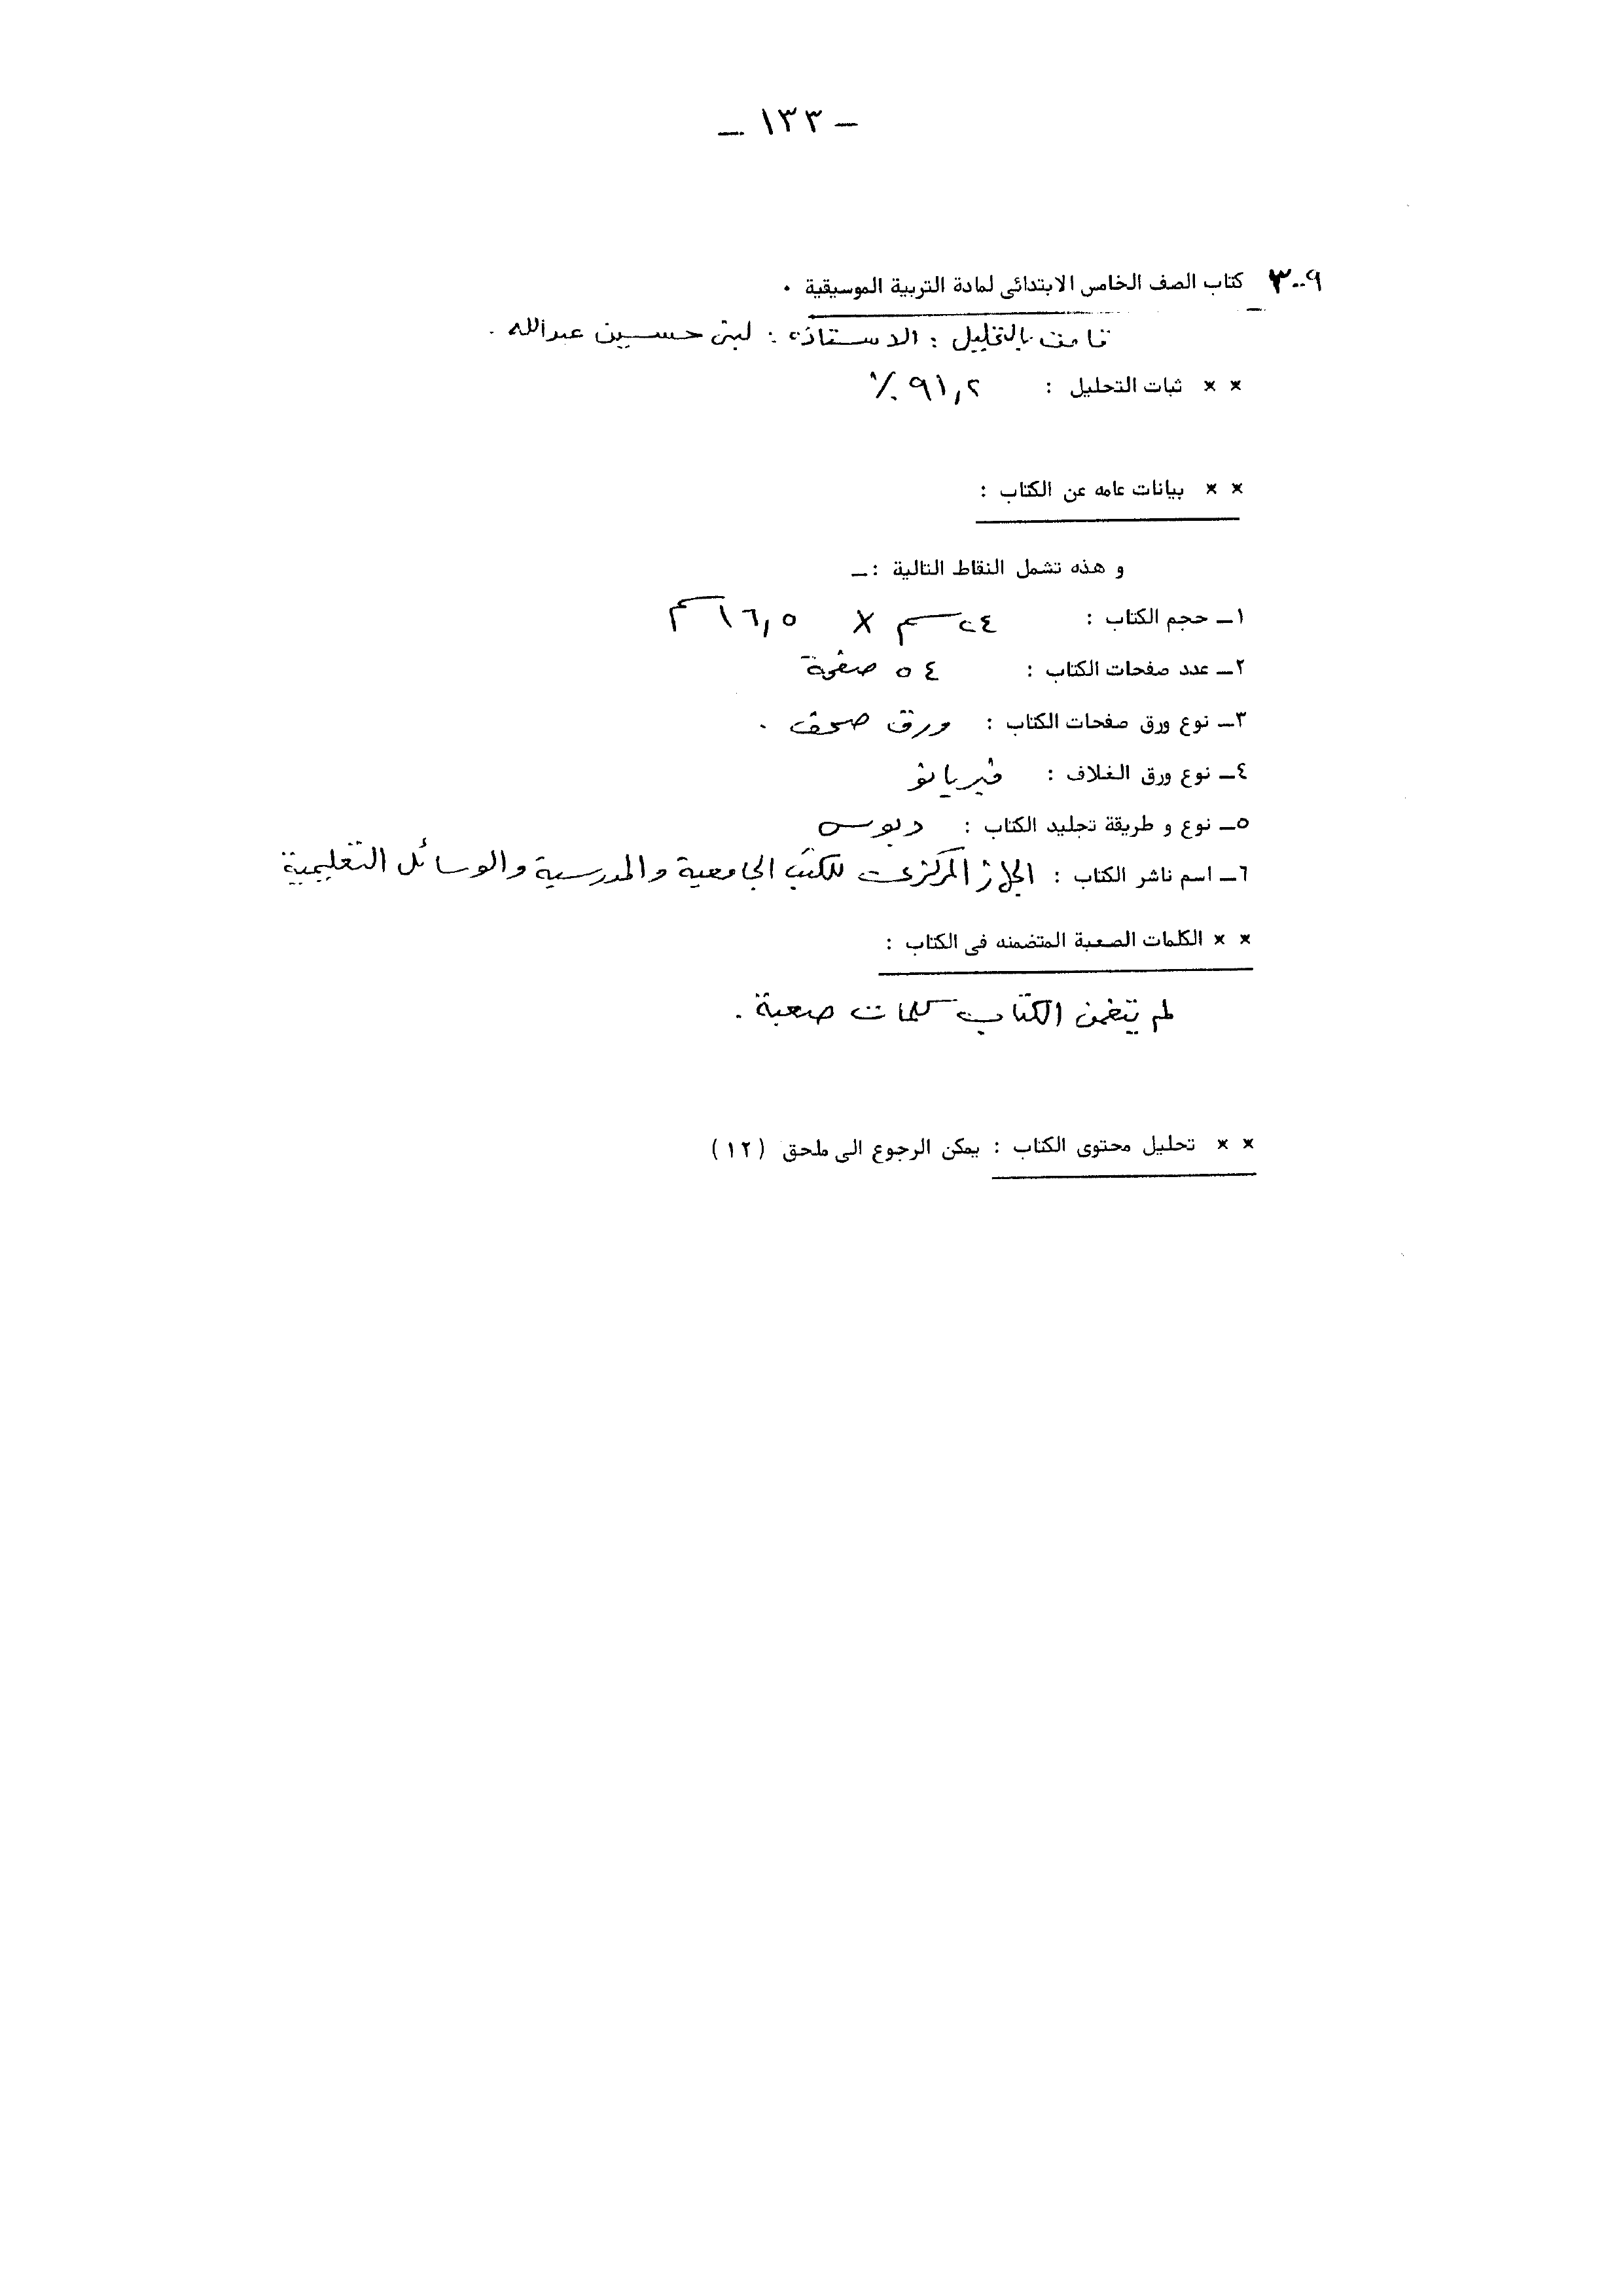 ـ ١٣٣ ـ
٣٠٠٩ كتاب الصف الخامس الابتدائى لمادة التربية الموسيقية ٠
قامت بالتحليل : الاستاذة : لبنى حسين عبدالله .
×× ثبات التحليل : ٩١,٢ ٪
×× بيانات عامه عن الكتاب :
و هذه تشمل النقاط التالية :ـ
١ـ حجم الكتاب : ٢٤ سم × ١٦,٥ سم
٢ـ عدد صفحات الكتاب : ٥٤ صفحة
٣ـ نوع ورق صفحات الكتاب : ورق صحف .
٤ـ نوع ورق الغلاف : فبريانو
٥ـ نوع و طريقة تجليد الكتاب : دبوس
٦ـ اسم ناشر الكتاب : الجهاز المركزى للكتب الجامعية والمدرسية والوسائل التعليمية
×× الكلمات الصعبة المتضمنه فى الكتاب :
لم يتضمن الكتاب كلمات صعبة .
×× تحليل محتوى الكتاب : يمكن الرجوع الى ملحق (١٢)